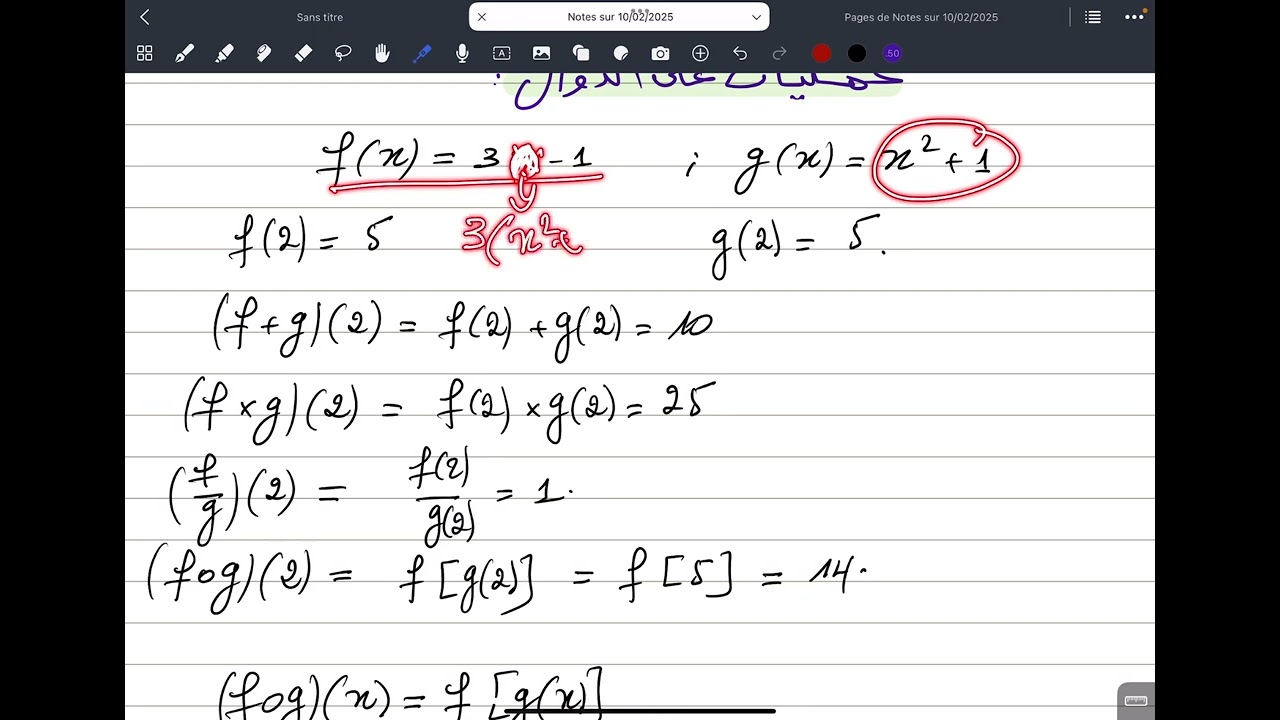 Sans titre
Notes sur 10/02/2025
Pages de Notes sur 10/02/2025
A
50
عمليات على الدوال :
f(x) = 3 - 1 ; g(x) = x² + 1
f(2) = 5 3(x²+ g(2) = 5.
(f+g)(2) = f(2) + g(2) = 10
(f×g)(2) = f(2) × g(2) = 25
(f/g)(2) = f(2)/g(2) = 1.
(fog)(2) = f[g(2)] = f[5] = 14.
(fog)(x) = f[g(x)]